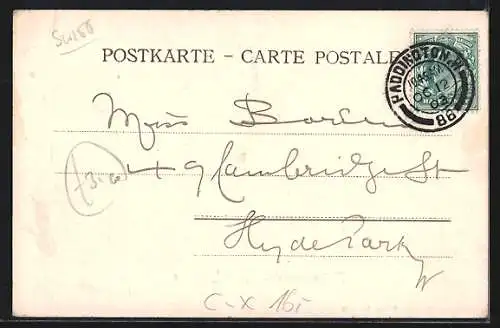 Swiss
POSTKARTE - CARTE POSTALE
PADDINGTON. W.
OC 12
03
86
Miss
49 Cambridge St
Hyde Park
W
C-X 16